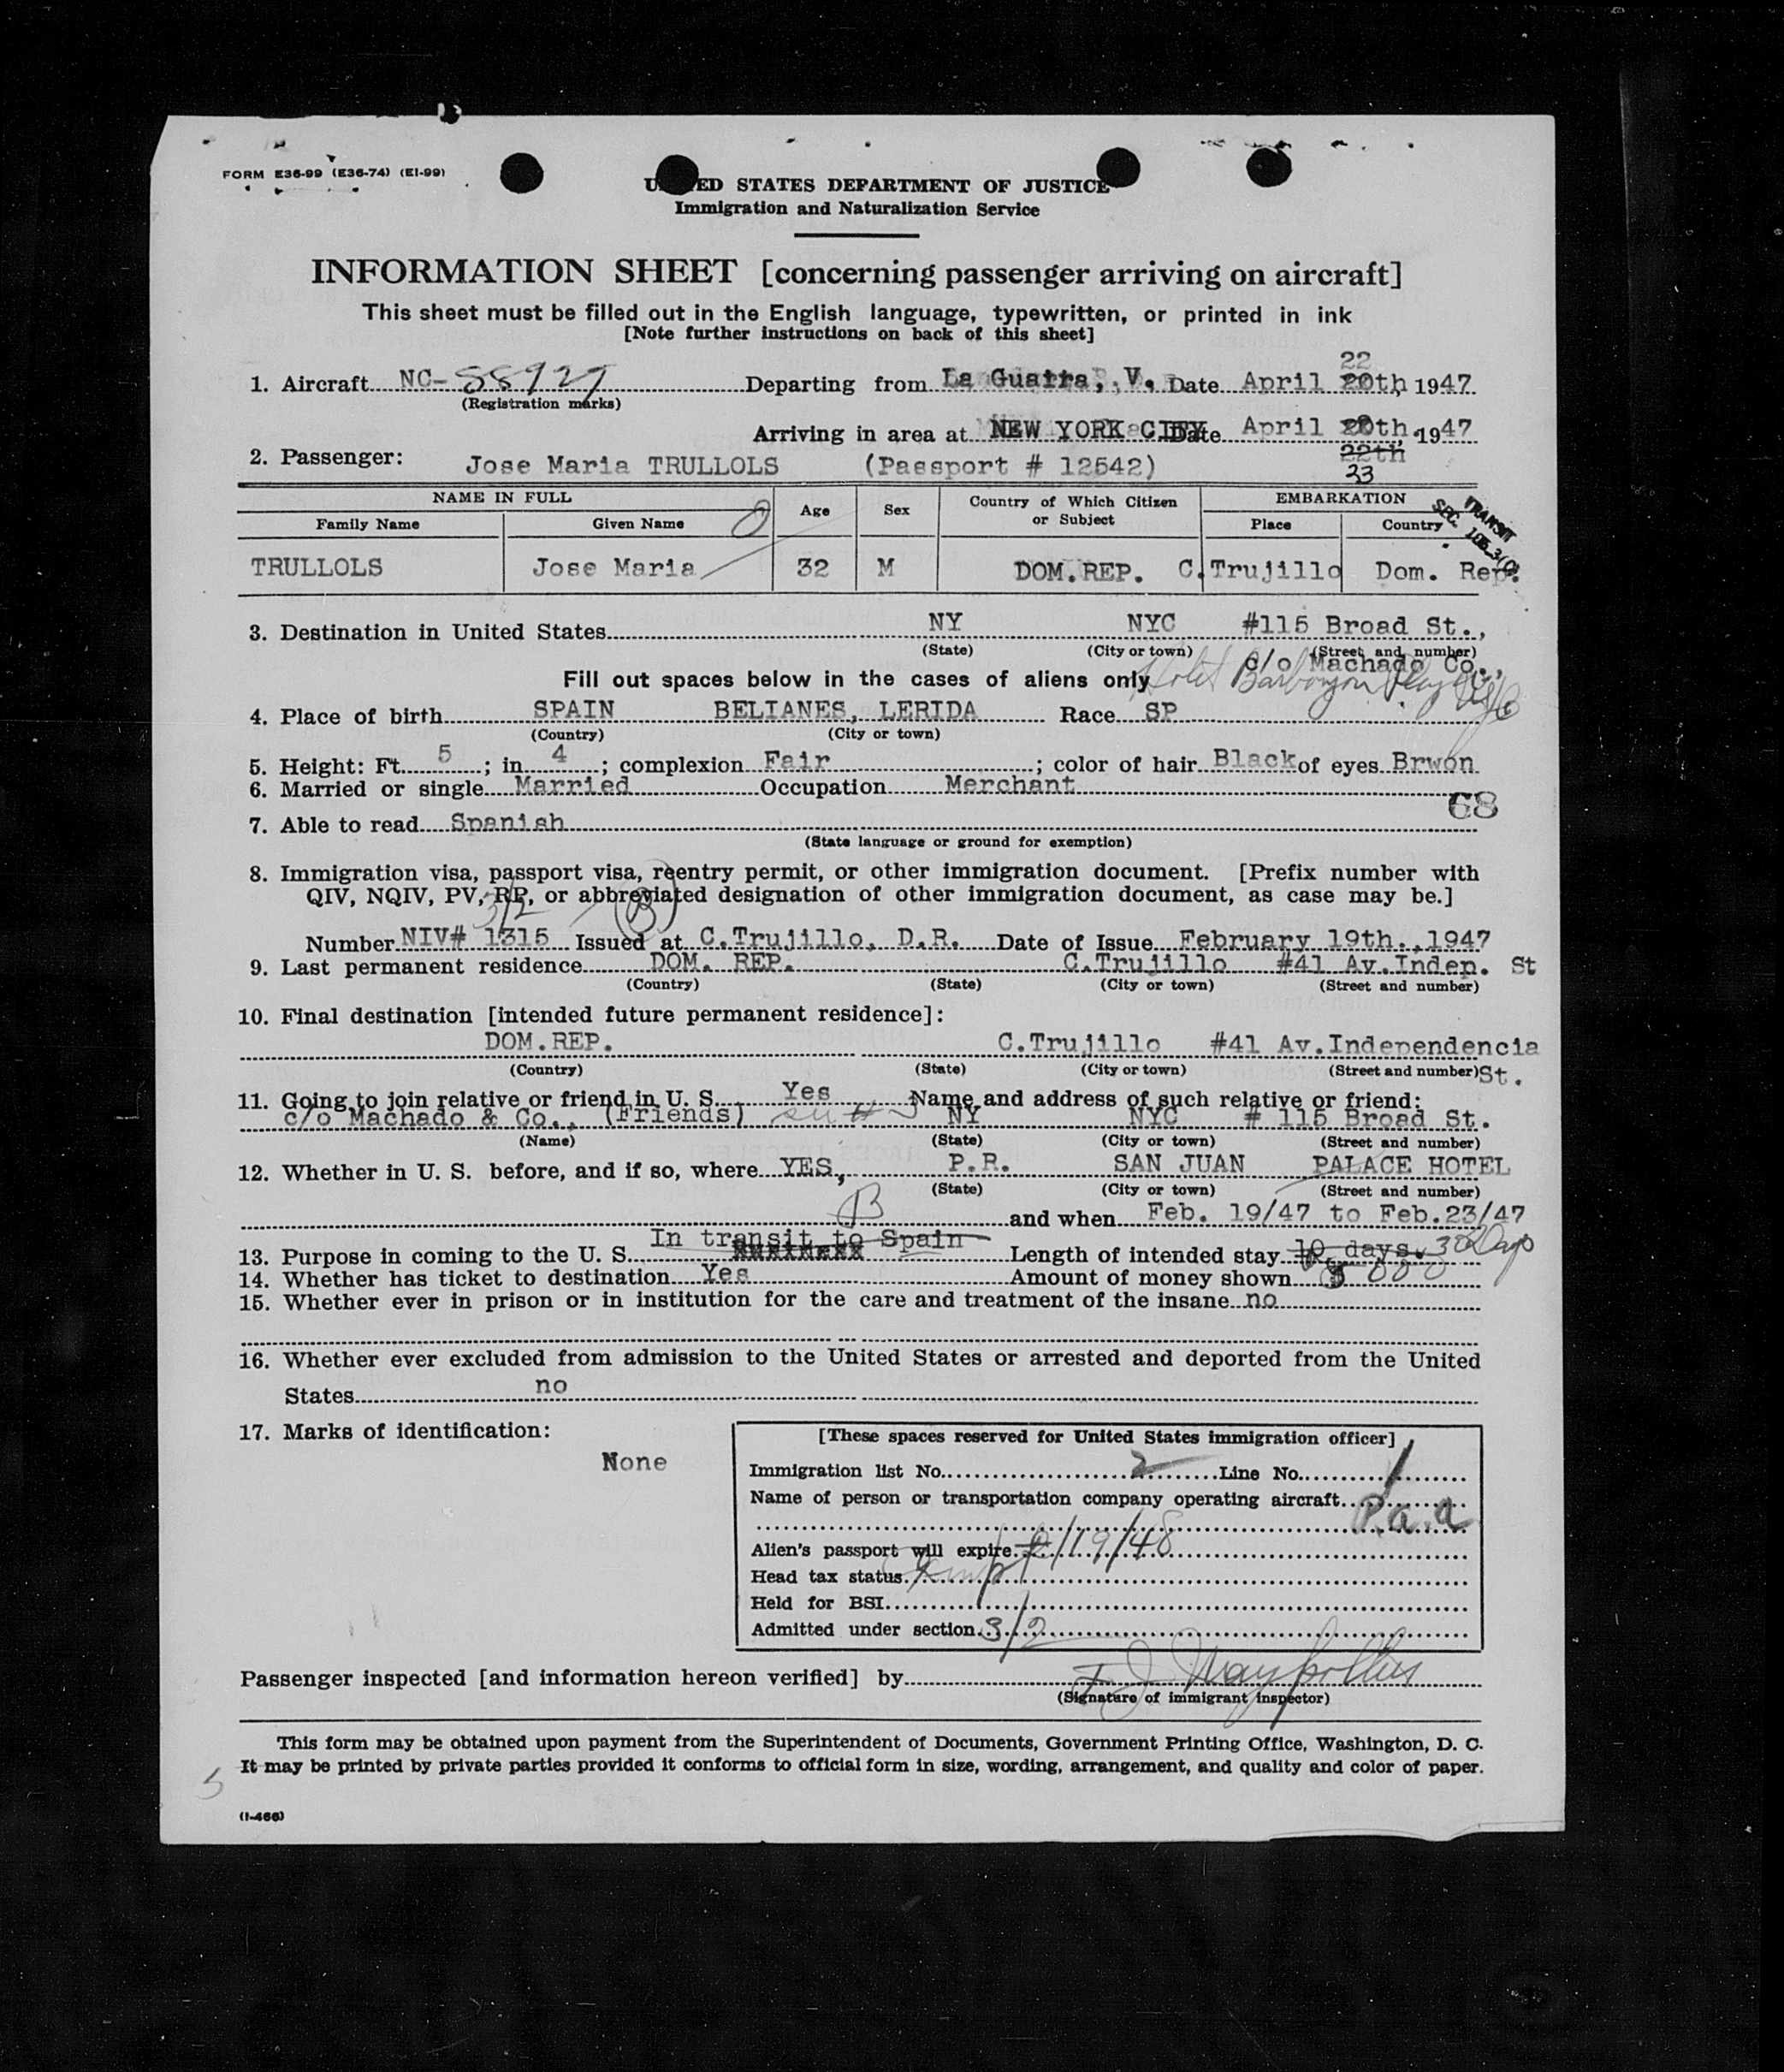 FORM E36-99 (E36-74) (EI-99)
U ED STATES DEPARTMENT OF JUSTICE
Immigration and Naturalization Service
INFORMATION SHEET [concerning passenger arriving on aircraft]
This sheet must be filled out in the English language, typewritten, or printed in ink
[Note further instructions on back of this sheet]
22
1. Aircraft NC- Departing from La Guaira, V. Date April 20th, 1947
(Registration marks)
Arriving in area at NEW YORK CITY Date April 20th, 1947
22th
2. Passenger: Jose Maria TRULLOLS (Passport # 12542)
23
NAME IN FULL Age Sex Country of Which Citizen or Subject EMBARKATION
Family Name Given Name Place Country
TRANSIT
SEC.
TRULLOLS Jose Maria 32 M DOM.REP. C.Trujillo Dom. Rep.
3. Destination in United States NY NYC #115 Broad St.,
(State) (City or town) (Street and number)
c/o Machado Co.,
Fill out spaces below in the cases of aliens only Hotel
4. Place of birth SPAIN BELIANES, LERIDA Race SP
(Country) (City or town)
5. Height: Ft. 5 ; in 4 ; complexion Fair ; color of hair Black of eyes Brwon
6. Married or single Married Occupation Merchant
68
7. Able to read Spanish
(State language or ground for exemption)
8. Immigration visa, passport visa, reentry permit, or other immigration document. [Prefix number with
QIV, NQIV, PV, RP, or abbreviated designation of other immigration document, as case may be.]
3/2 (B)
Number NIV# 1315 Issued at C.Trujillo, D.R. Date of Issue February 19th.,1947
9. Last permanent residence DOM. REP. C.Trujillo #41 Av.Indep. St
(Country) (State) (City or town) (Street and number)
10. Final destination [intended future permanent residence]:
DOM.REP. C.Trujillo #41 Av.Independencia
(Country) (State) (City or town) (Street and number) St.
11. Going to join relative or friend in U. S. Yes Name and address of such relative or friend:
c/o Machado & Co., (Friends) NY NYC # 115 Broad St.
(Name) (State) (City or town) (Street and number)
12. Whether in U. S. before, and if so, where YES, P.R. SAN JUAN PALACE HOTEL
(State) (City or town) (Street and number)
B and when Feb. 19/47 to Feb.23/47
In transit to Spain
13. Purpose in coming to the U. S. Length of intended stay 10 days. 30 Days
14. Whether has ticket to destination Yes Amount of money shown
15. Whether ever in prison or in institution for the care and treatment of the insane no
16. Whether ever excluded from admission to the United States or arrested and deported from the United
States no
17. Marks of identification:
None
[These spaces reserved for United States immigration officer]
Immigration list No. 2 Line No. 1
Name of person or transportation company operating aircraft
P.a.a
Alien's passport will expire 2/19/48
Head tax status
Held for BSI
Admitted under section 3/2
Passenger inspected [and information hereon verified] by
(Signature of immigrant inspector)
This form may be obtained upon payment from the Superintendent of Documents, Government Printing Office, Washington, D. C.
It may be printed by private parties provided it conforms to official form in size, wording, arrangement, and quality and color of paper.
5
(I-466)